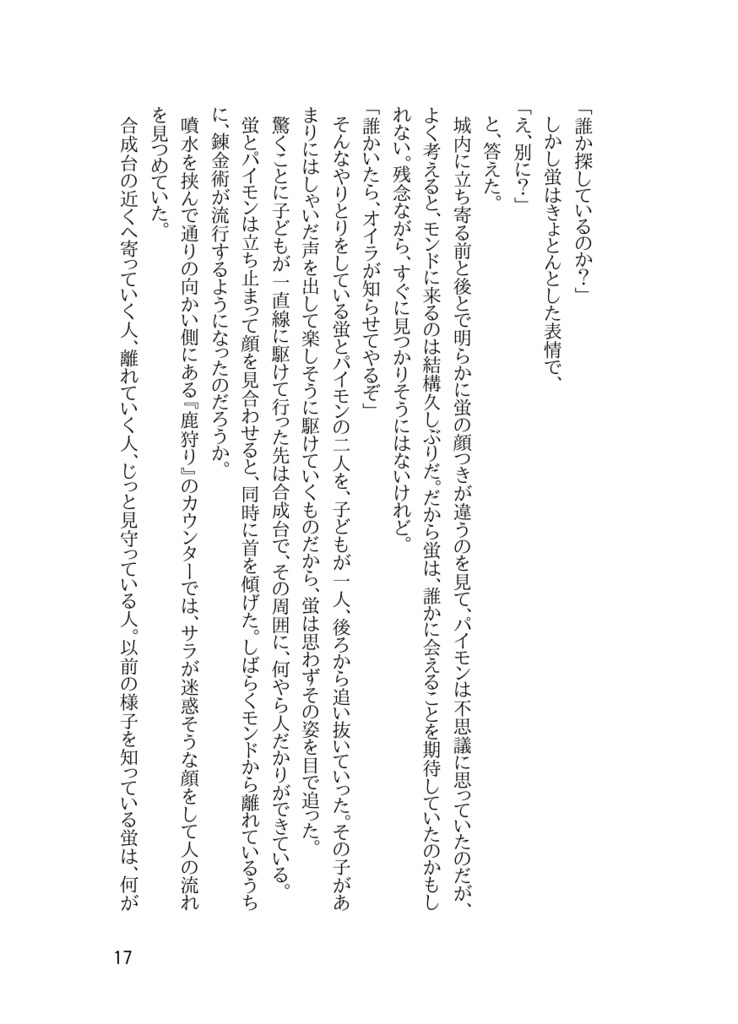 「誰か探しているのか？」
しかし蛍はきょとんとした表情で、
「え、別に？」
と、答えた。
城内に立ち寄る前と後とで明らかに蛍の顔つきが違うのを見て、パイモンは不思議に思っていたのだが、
よく考えると、モンドに来るのは結構久しぶりだ。だから蛍は、誰かに会えることを期待していたのかもし
れない。残念ながら、すぐに見つかりそうにはないけれど。
「誰かいたら、オイラが知らせてやるぞ」
そんなやりとりをしている蛍とパイモンの二人を、子どもが一人、後ろから追い抜いていった。その子があ
まりにはしゃいだ声を出して楽しそうに駆けていくものだから、蛍は思わずその姿を目で追った。
驚くことに子どもが一直線に駆けて行った先は合成台で、その周囲に、何やら人だかりができている。
蛍とパイモンは立ち止まって顔を見合わせると、同時に首を傾げた。しばらくモンドから離れているうち
に、錬金術が流行するようになったのだろうか。
噴水を挟んで通りの向かい側にある『鹿狩り』のカウンターでは、サラが迷惑そうな顔をして人の流れ
を見つめていた。
合成台の近くへ寄っていく人、離れていく人、じっと見守っている人。以前の様子を知っている蛍は、何が
17